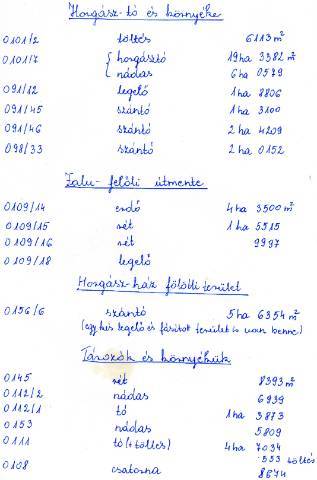 Horgász-tó és környéke
0101/2 töltés 6113 m²
0101/7 { horgásztó 19 ha 3382 m²
nádas 6 ha 0579
091/12 legelő 1 ha 8806
091/45 szántó 1 ha 3100
091/46 szántó 2 ha 4209
098/33 szántó 2 ha 0152
Falu-felőli útmente
0109/14 erdő 4 ha 3500 m²
0109/15 rét 1 ha 5515
0109/16 rét 9997
0109/18 legelő
Horgász-ház fölötti terület
0156/6 szántó 5 ha 6354 m²
(egy kis legelő és fásitot terület is van benne)
Tározók és környékük
0145 rét 8393 m²
0112/2 nádas 6939
0112/1 tó 1 ha 3873
0153 nádas 5809
0111 tó (+töltés) 4 ha 7034
553 töltés
0108 csatorna 8674